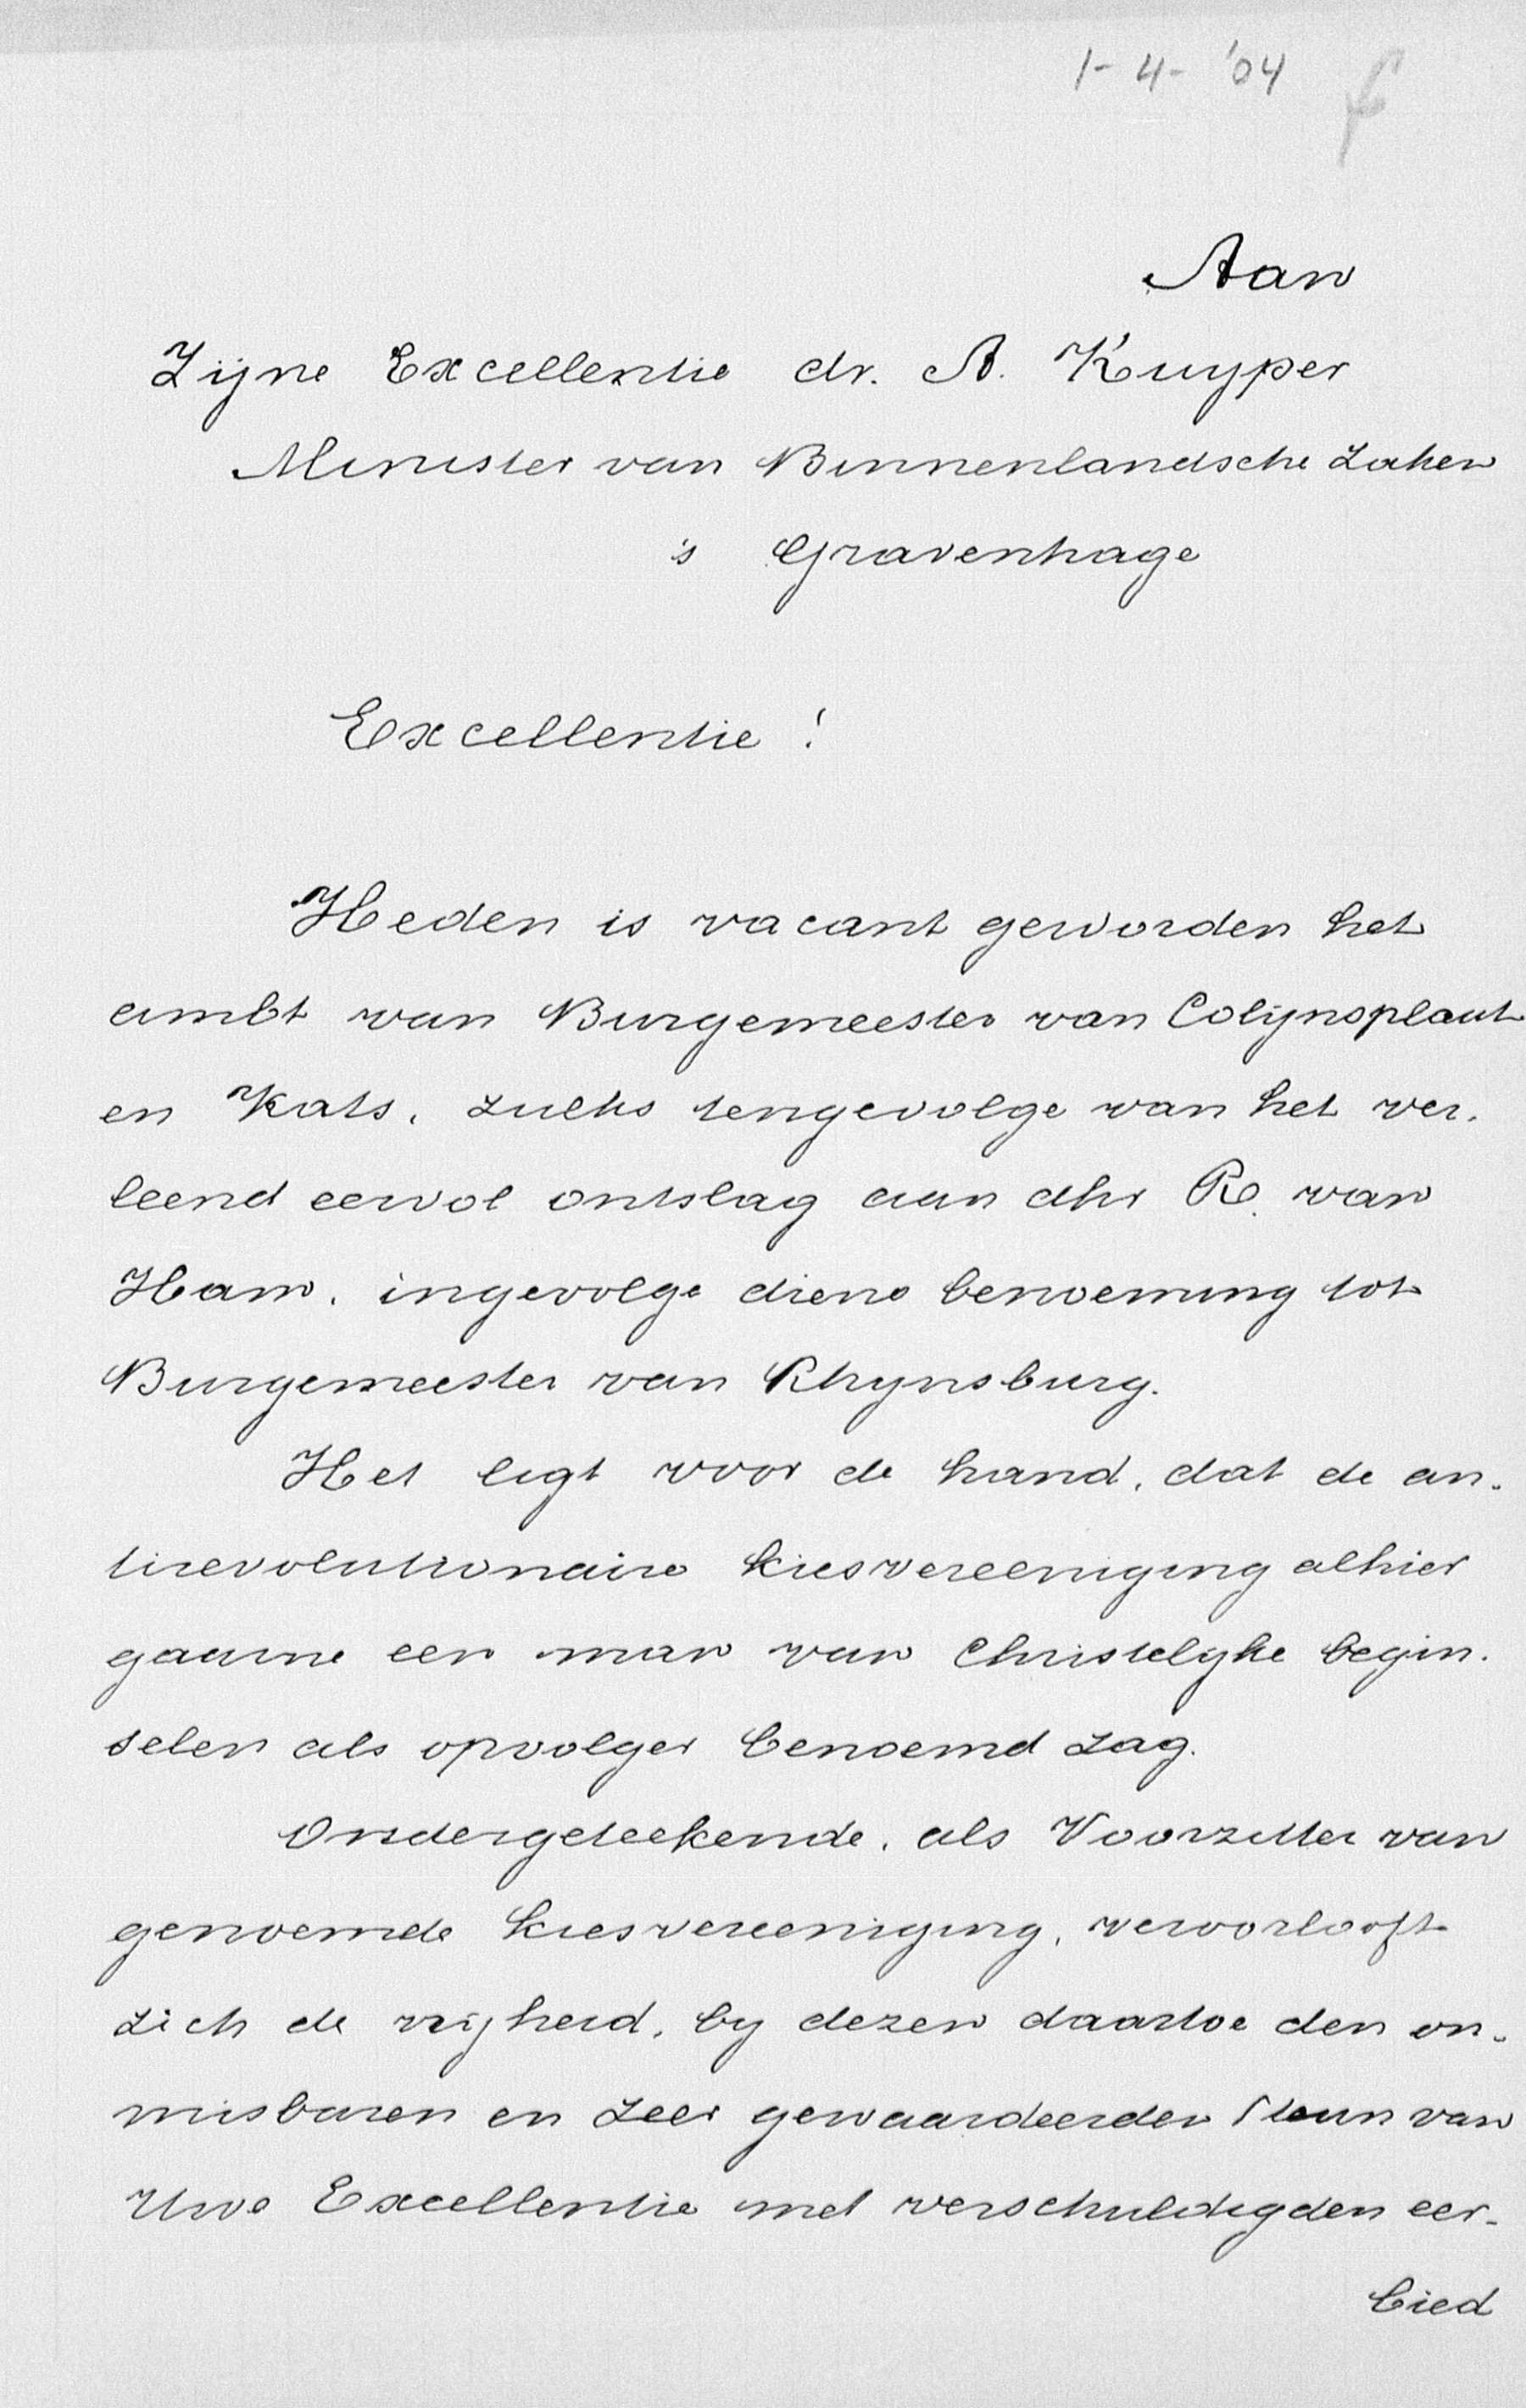 1-4-'04
Aan
Zijne Excellentie dr. A. Kuyper
Minister van Binnenlandsche Zaken
's Gravenhage
Excellentie!
Heden is vacant geworden het
ambt van Burgemeester van Colijnsplaat
en Kats, zulks tengevolge van het ver-
leend eervol ontslag aan dhr R. van
Ham, ingevolge diens benoeming tot
Burgemeester van Rhynsburg.
Het ligt voor de hand, dat de an-
tirevolutionaire kiesvereeniging alhier
gaarne een man van Christelyke begin-
selen als opvolger benoemd zag.
Ondergeteekende, als Voorzitter van
genoemde kiesvereeniging, veroorlooft
zich de vrijheid, by dezen daartoe den on-
misbaren en zeer gewaardeerden steun van
Uwe Excellentie met verschuldigden eer-
bied